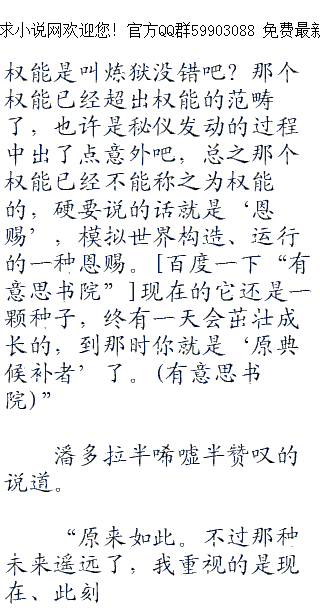 求小说网欢迎您! 官方QQ群59903088 免费最新
权能是叫炼狱没错吧? 那个
权能已经超出权能的范畴
了, 也许是秘仪发动的过程
中出了点意外吧, 总之那个
权能已经不能称之为权能
的, 硬要说的话就是‘恩
赐’, 模拟世界构造、运行
的一种恩赐。[百度一下“有
意思书院”]现在的它还是一
颗种子, 终有一天会茁壮成
长的, 到那时你就是‘原典
候补者’了。(有意思书
院)”
潘多拉半唏嘘半赞叹的
说道。
“原来如此。不过那种
未来遥远了, 我重视的是现
在、此刻